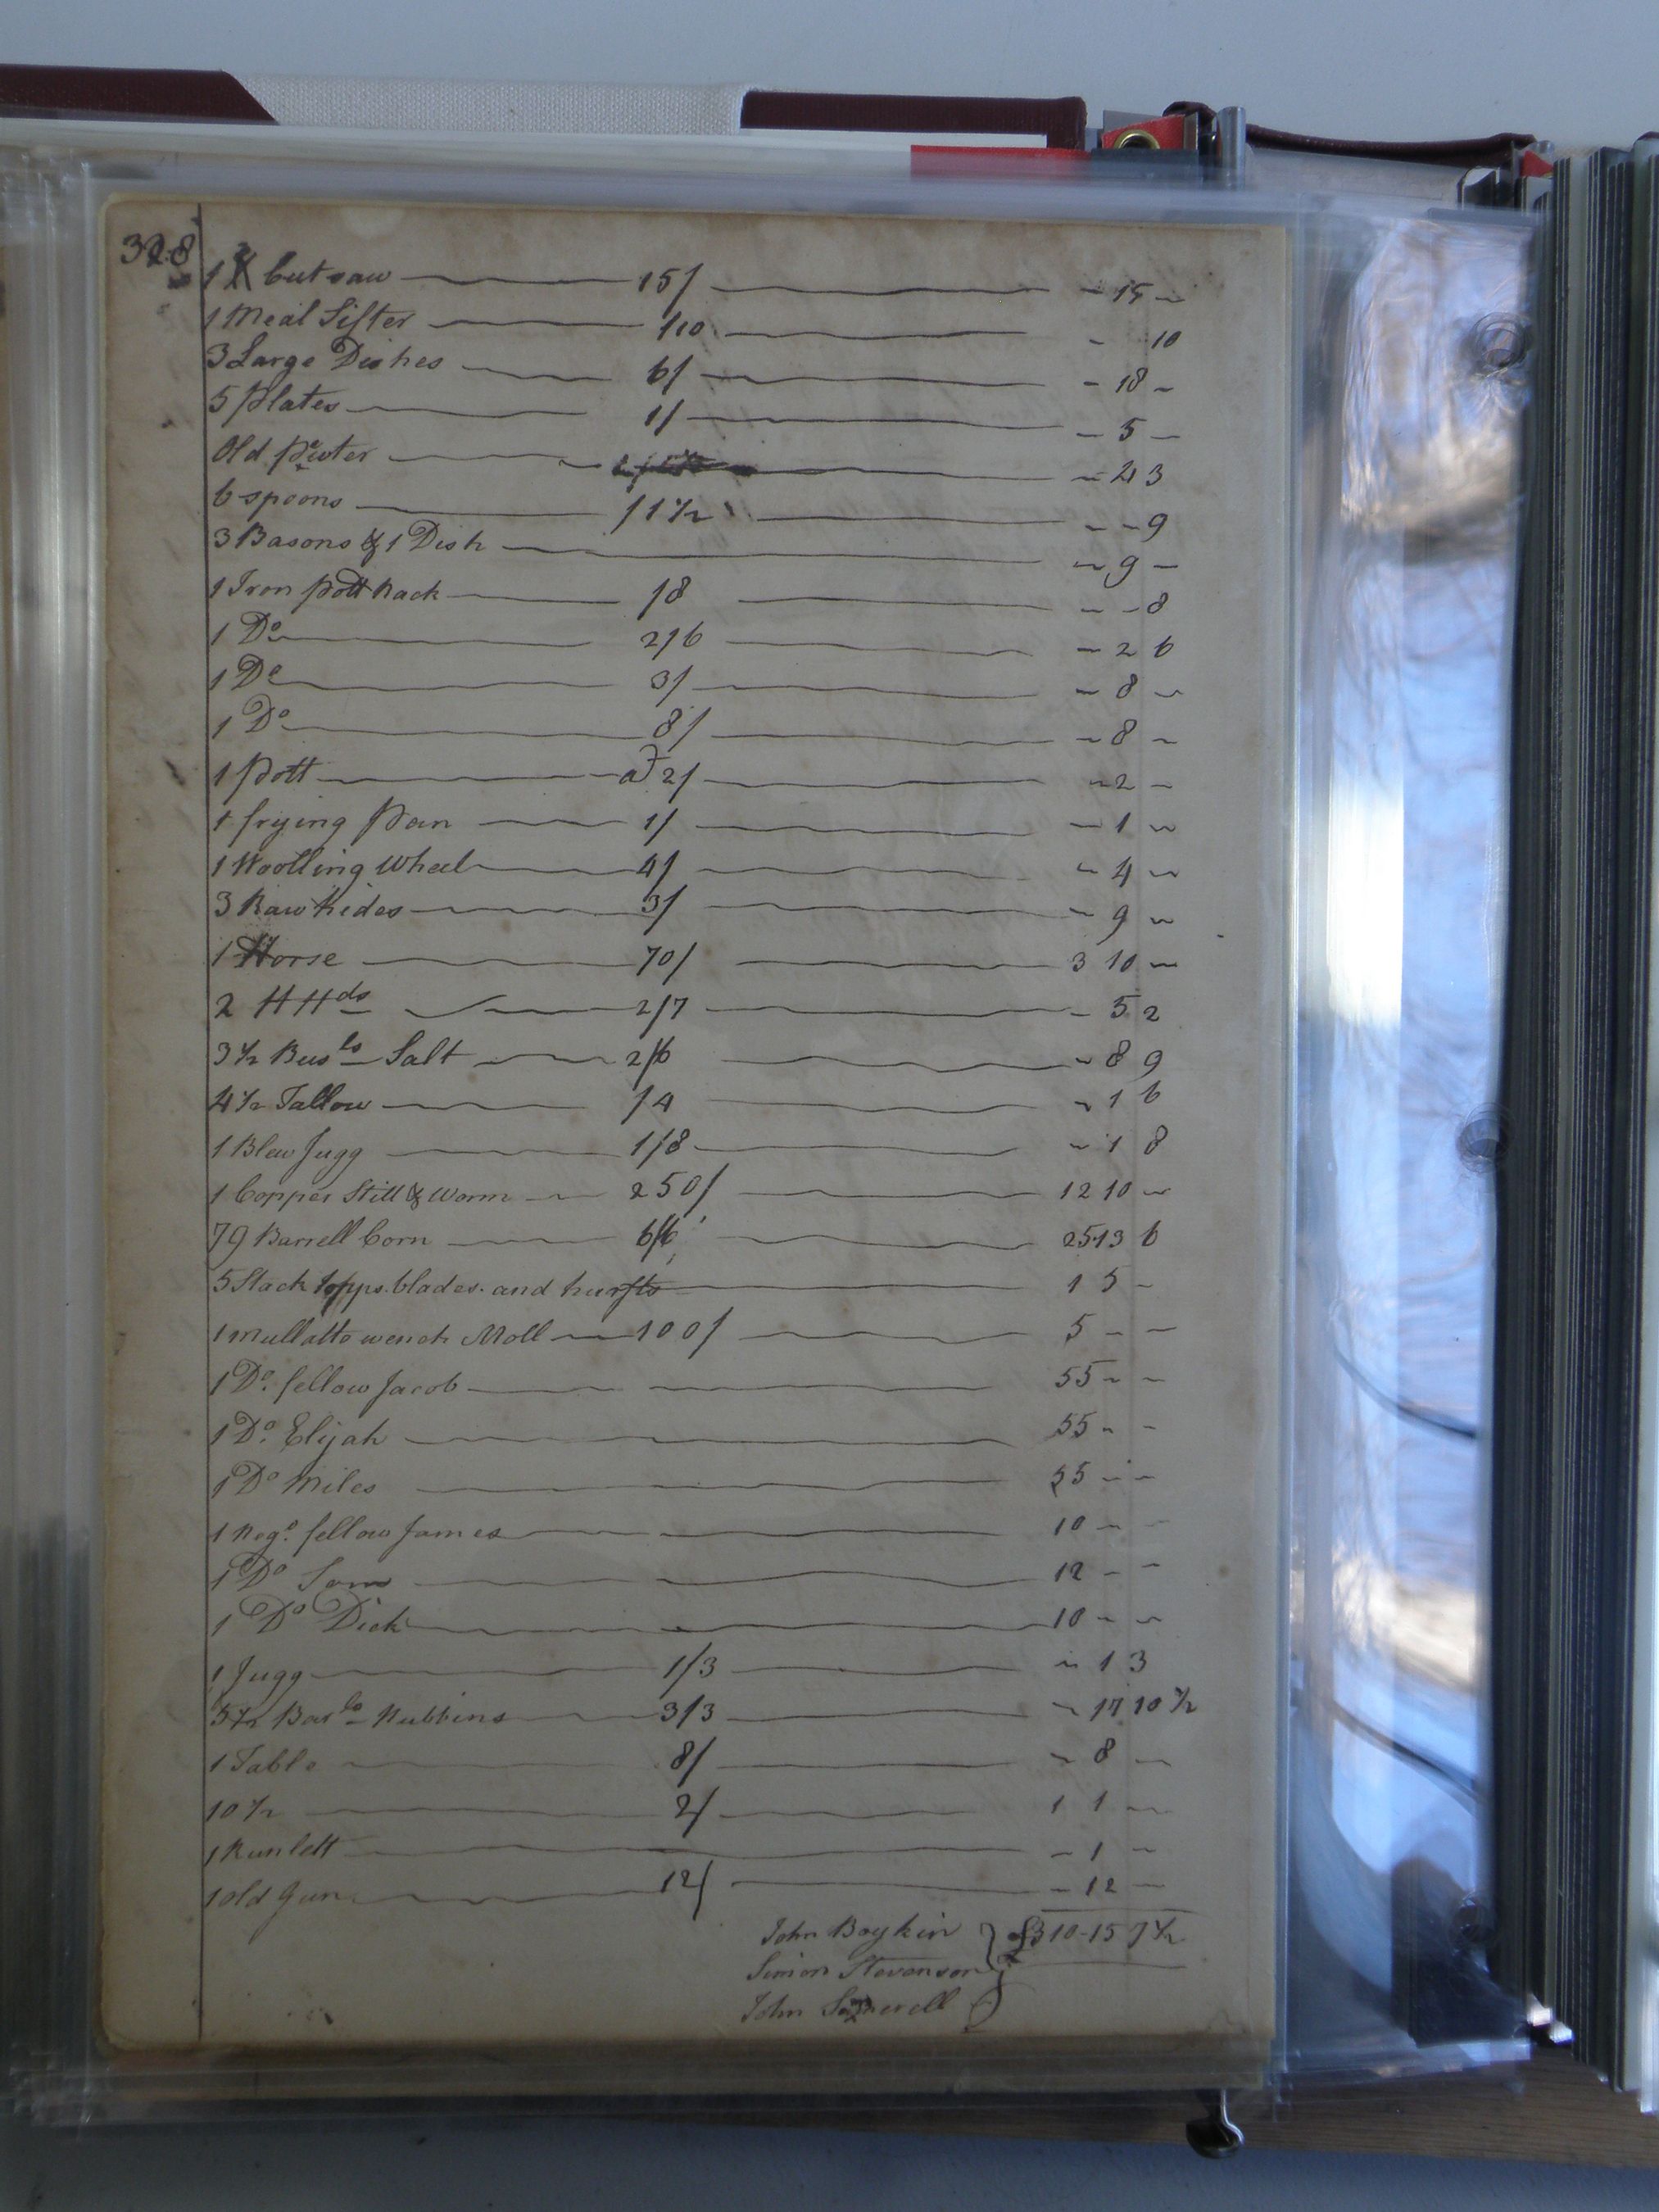 328
1 X Cut saw 15/ - 15 -
1 Meal Sifter /10 - 10
3 Large Dishes 6/ - 18 -
5 Plates 1/ - 5 -
Old Pewter - 4 3
6 spoons /1 1/2 - - 9
3 Basons & 1 Dish - 9 -
1 Iron Pott Rack /8 - - 8
1 Do 2/6 - 2 6
1 Do 3/ - 8 -
1 Do 8/ - 8 -
1 Pott a 2/ - 2 -
1 frying Pan 1/ - 1 -
1 Woolling Wheel 4/ - 4 -
3 Raw hides 3/ - 9 -
1 Horse 70/ 3 10 -
2 HHds 2/7 - 5 2
3 1/2 Busls Salt 2/6 - 8 9
4 1/2 Tallow /4 - 1 6
1 Blew Jugg 1/8 - 1 8
1 Copper Still & Worm 250/ 12 10 -
79 Barrell Corn 6/6 25 13 6
5 Stack topps. blades. and 1 5 -
1 mullatto wench Moll 100/ 5 - -
1 Do. fellow Jacob 55 - -
1 Do. Elijah 55 - -
1 Do Miles 55 - -
1 Nego. fellow James 10 - -
1 Do Sam 12 - -
1 Do Dick 10 - -
1 Jugg 1/3 - 1 3
5 1/2 Barls Nubbins 3/3 - 17 10 1/2
1 Table 8/ - 8 -
10 1/2 2/ 1 1 -
1 Runlett - 1 -
1 old Gun 12/ - 12 -
John Boykin } £310-15 7 1/2
Simon Stevenson
John